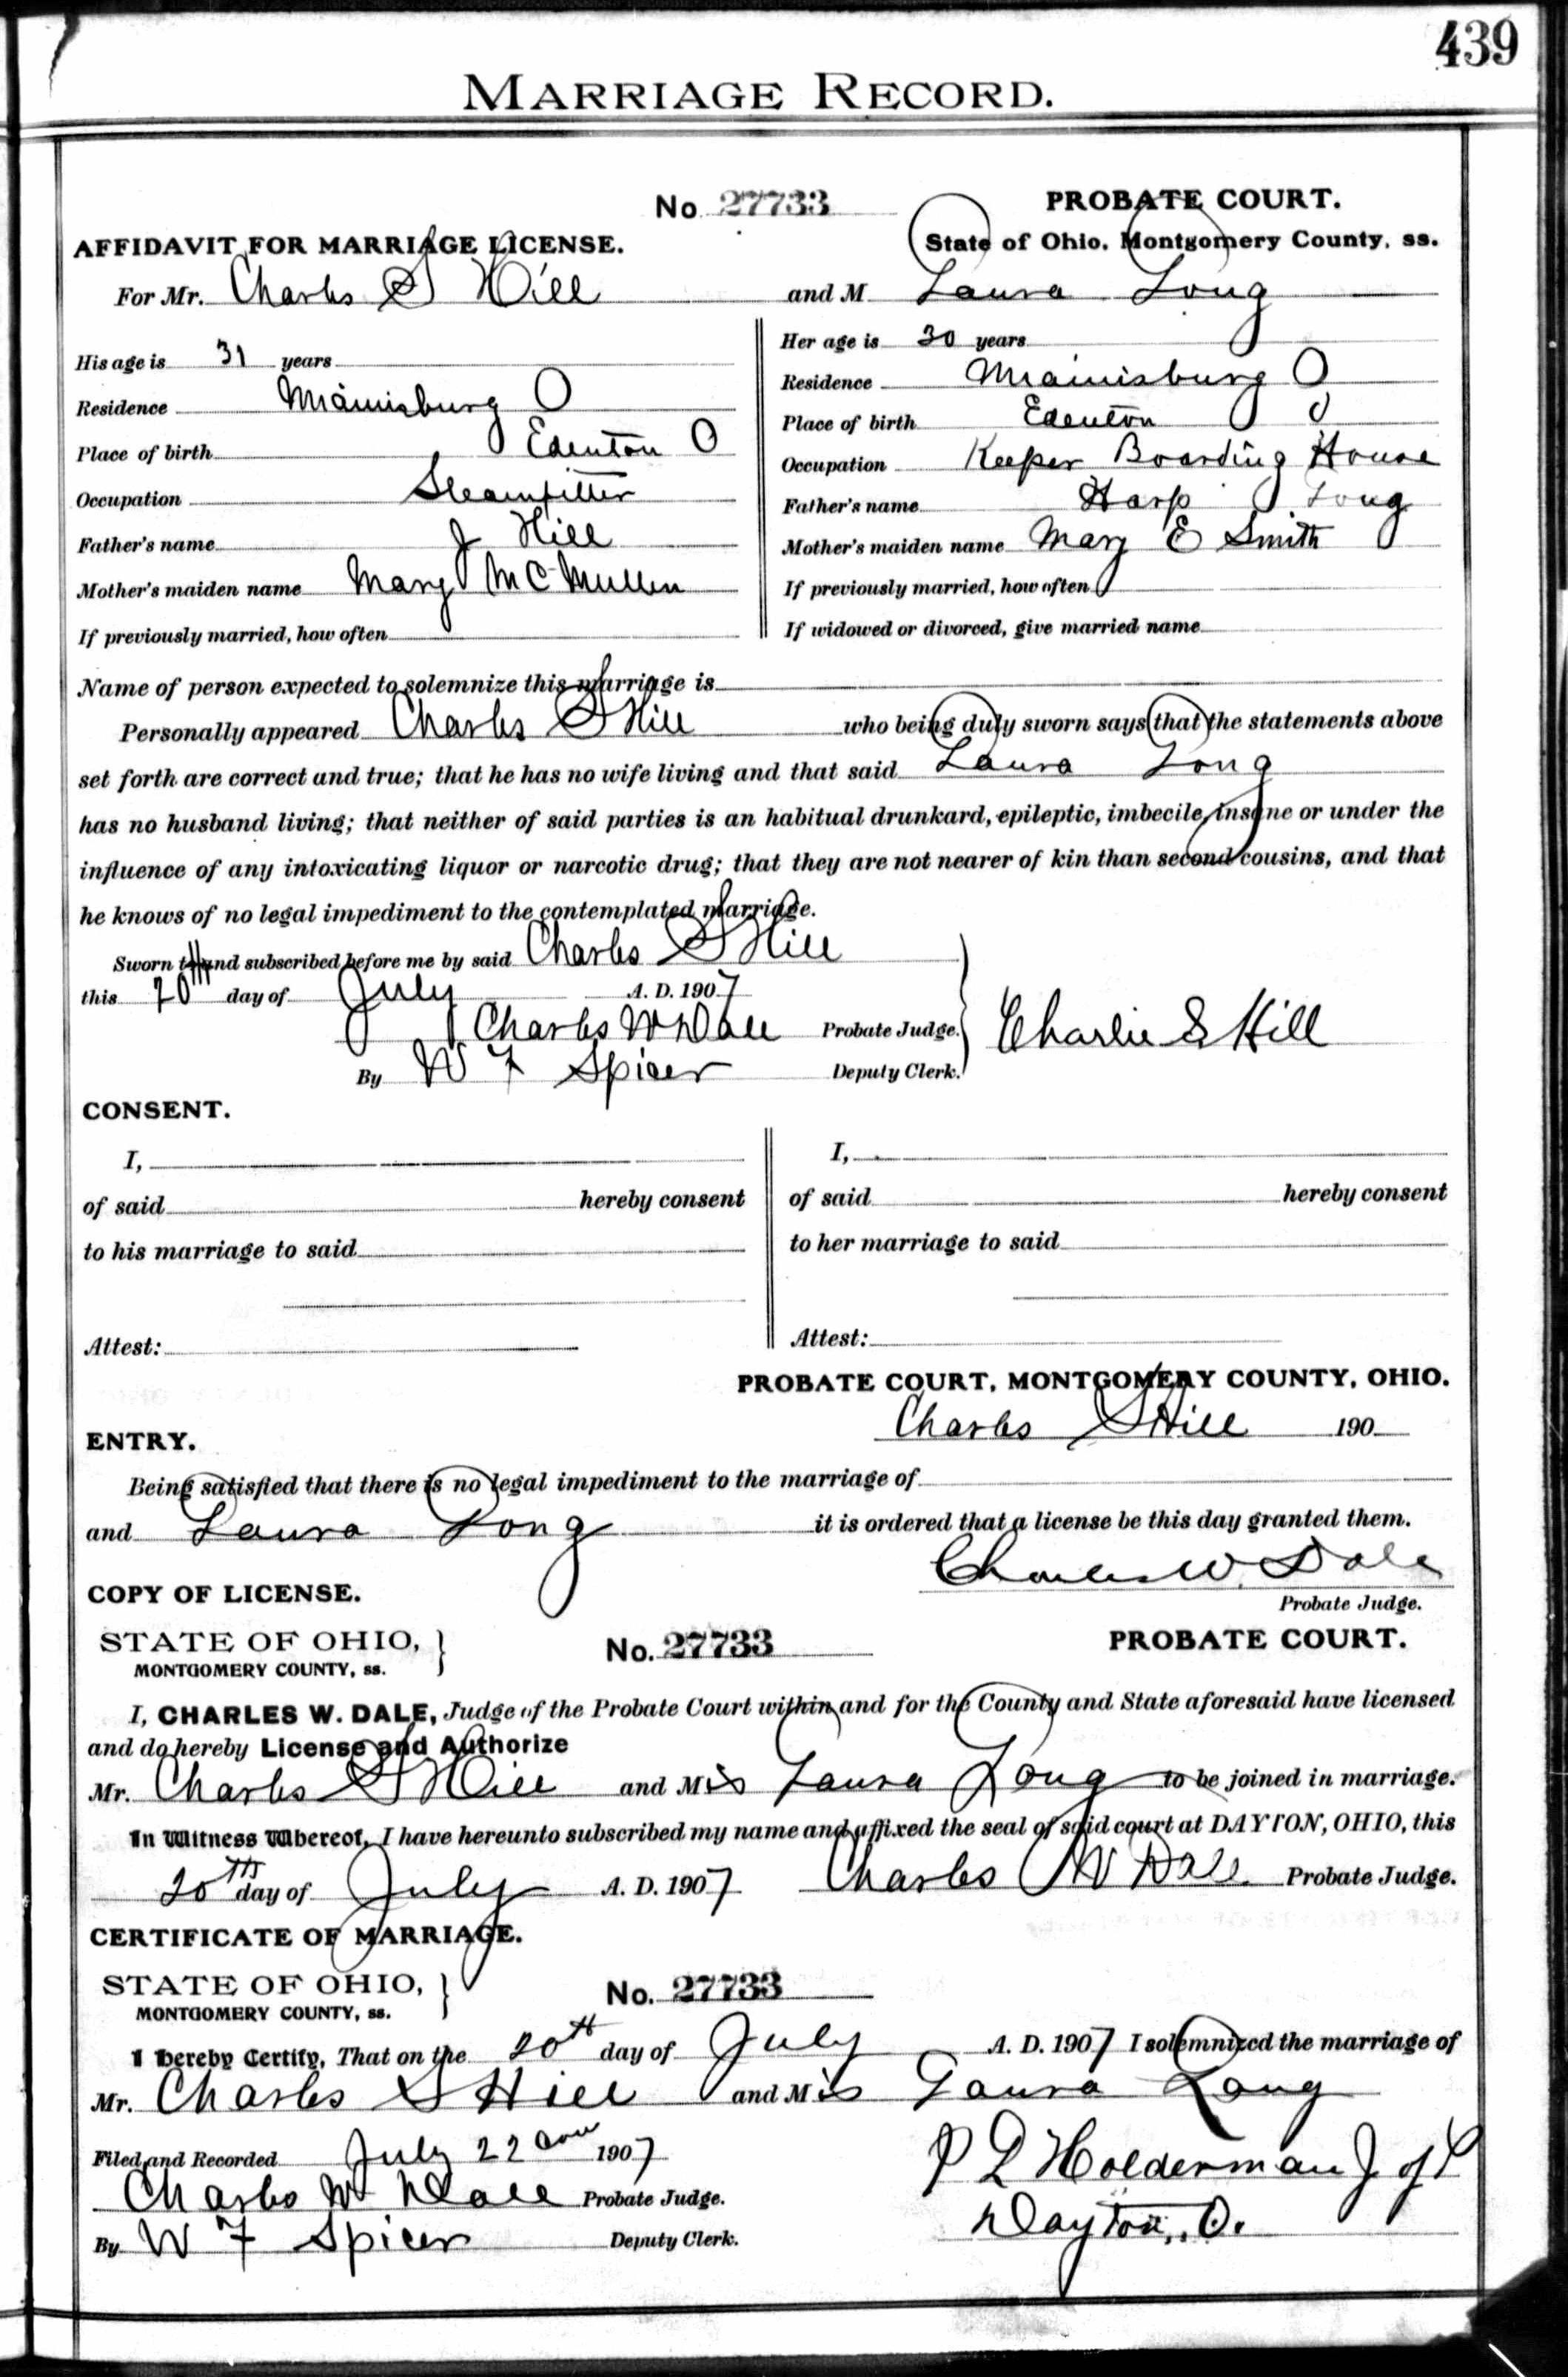 439
MARRIAGE RECORD.
No 27733 PROBATE COURT.
AFFIDAVIT FOR MARRIAGE LICENSE. State of Ohio, Montgomery County, ss.
For Mr. Charles S Hill and M Laura Long
His age is 31 years
Residence Miamisburg O
Place of birth Edenton O
Occupation Steamfitter
Father's name J Hill
Mother's maiden name Mary McMullen
If previously married, how often
Her age is 30 years
Residence Miamisburg O
Place of birth Edenton O
Occupation Keeper Boarding House
Father's name Harp Long
Mother's maiden name Mary E Smith
If previously married, how often
If widowed or divorced, give married name
Name of person expected to solemnize this marriage is
Personally appeared Charles S Hill who being duly sworn says that the statements above
set forth are correct and true; that he has no wife living and that said Laura Long
has no husband living; that neither of said parties is an habitual drunkard, epileptic, imbecile, insane or under the
influence of any intoxicating liquor or narcotic drug; that they are not nearer of kin than second cousins, and that
he knows of no legal impediment to the contemplated marriage.
Sworn to and subscribed before me by said Charles S Hill
this 20th day of July A. D. 1907
Charles W Dale Probate Judge. Charlie S Hill
By W F Spicer Deputy Clerk.
CONSENT.
I,
of said hereby consent
to his marriage to said
Attest:
I,
of said hereby consent
to her marriage to said
Attest:
PROBATE COURT, MONTGOMERY COUNTY, OHIO.
Charles S Hill 190
ENTRY.
Being satisfied that there is no legal impediment to the marriage of
and Laura Long it is ordered that a license be this day granted them.
Charles W. Dale
Probate Judge.
COPY OF LICENSE.
STATE OF OHIO, No. 27733 PROBATE COURT.
MONTGOMERY COUNTY, ss.
I, CHARLES W. DALE, Judge of the Probate Court within and for the County and State aforesaid have licensed
and do hereby License and Authorize
Mr. Charles S Hill and Mis Laura Long to be joined in marriage.
In Witness Whereof, I have hereunto subscribed my name and affixed the seal of said court at DAYTON, OHIO, this
20th day of July A. D. 1907 Charles W Dale Probate Judge.
CERTIFICATE OF MARRIAGE.
STATE OF OHIO, No. 27733
MONTGOMERY COUNTY, ss.
I Hereby Certify, That on the 20th day of July A. D. 1907 I solemnized the marriage of
Mr. Charles S Hill and Mis Laura Long
Filed and Recorded July 22 1907 P L Holderman J of P
Charles W Dale Probate Judge. Dayton, O.
By W F Spicer Deputy Clerk.